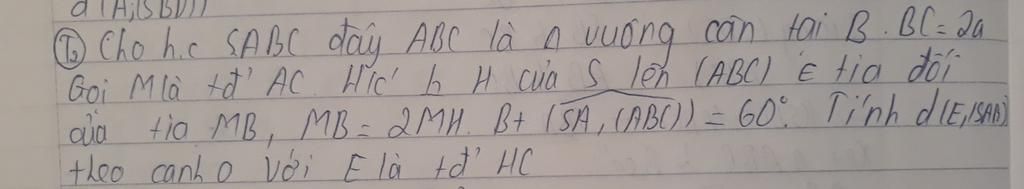 d(A,(SBD))
⑥ Cho h.c SABC đáy ABC là Δ vuông cân tại B. BC = 2a
Gọi M là tđ' AC. H/c' h H của S lên (ABC) ∈ tia đối
của tia MB, MB = 2MH. Bt (SA, (ABC)) = 60°. Tính d(E,(SAB))
theo canh a với E là tđ' HC